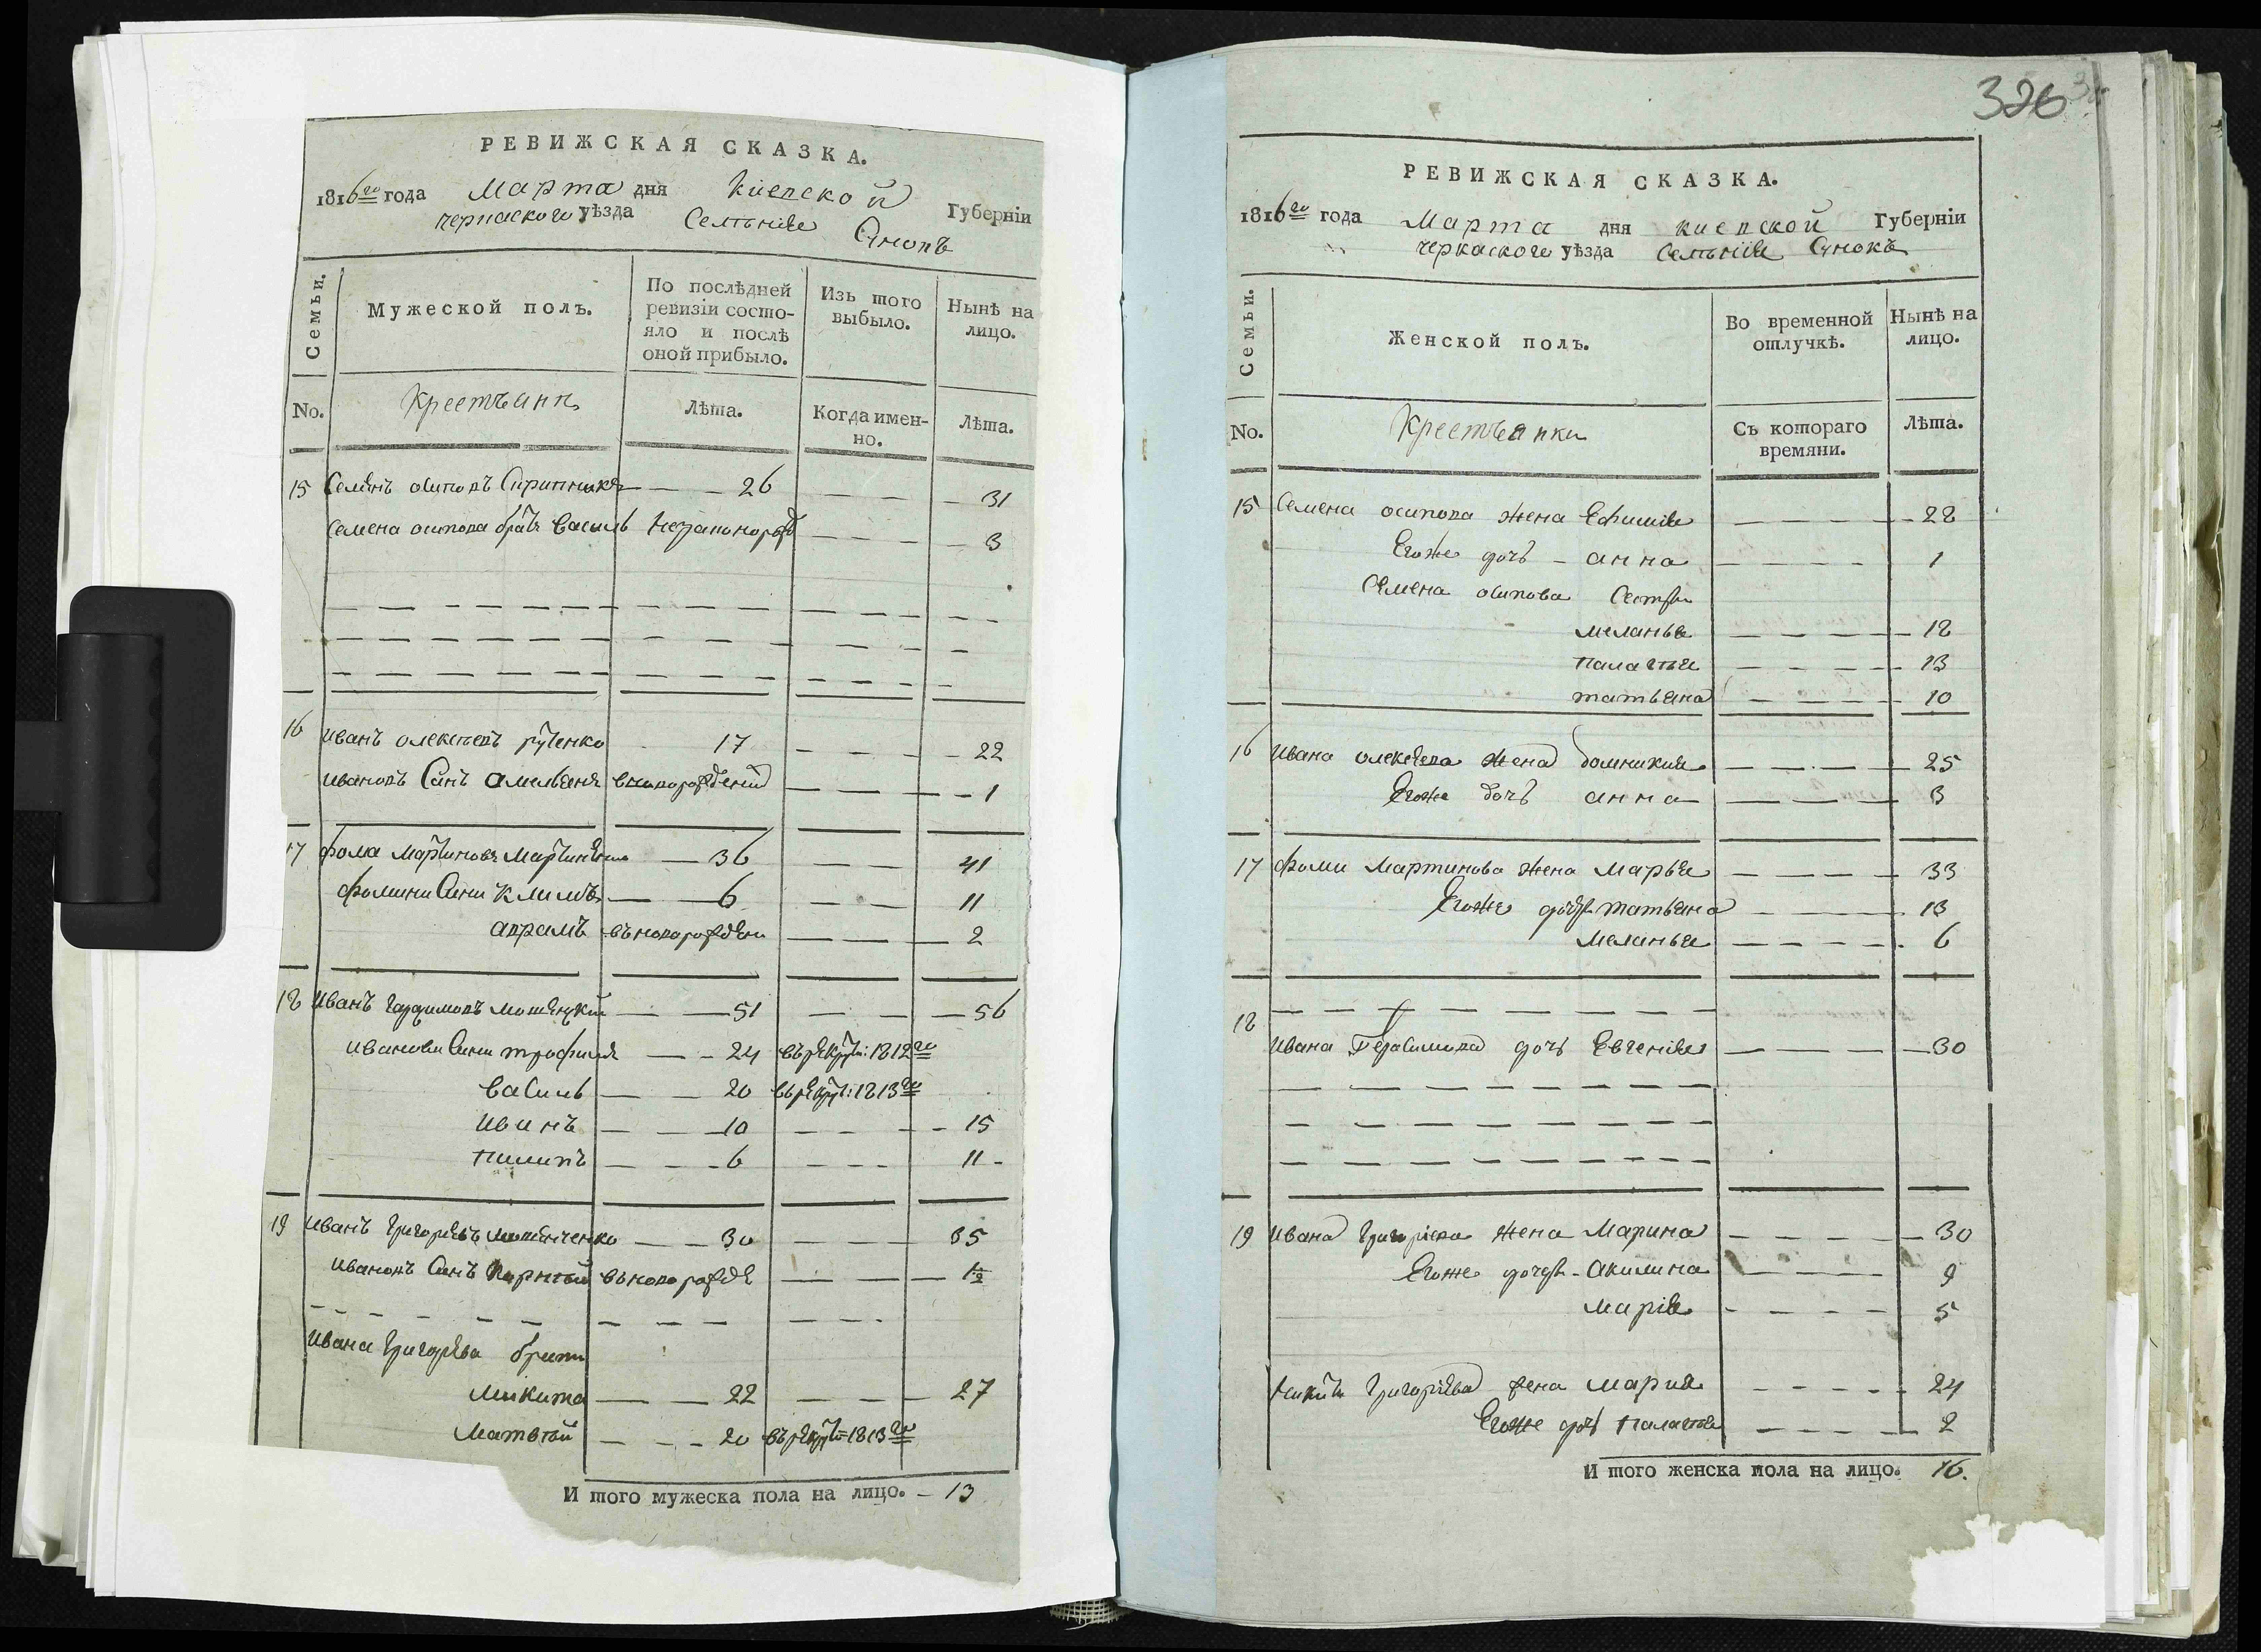 РЕВИЖСКАЯ СКАЗКА.
1816го года Марта дня киевской Губерніи
черкаского уѣзда Селѣнія Сунокъ
Семьи. Мужеской полъ. По послѣдней ревизіи состояло и послѣ оной прибыло. Изъ того выбыло. Нынѣ на лицо.
No. Крестьяне Лѣта. Когда именно. Лѣта.
15 Семенъ осиповъ Скрипникъ 26 31
Семена осипова братъ василь 3
16 иванъ олексѣевъ 17 22
ивановъ Синъ амельянъ вноворожденій 1
17 фома мартиновъ 36 41
фомини Сини климъ 6 11
аврамъ въноворожден 2
18 иванъ 51 56
иванови Сини трофимъ 24 въ рекрути: 1812го
василь 20 въ рекрут: 1813го
иванъ 10 15
пилипъ 6 11
19 иванъ григорѣвъ 30 35
ивановъ Синъ въноворожде 1½
ивана григорѣва брати
микита 22 27
матвѣй 20 въ рекрут 1813го
И того мужеска пола на лицо. 13
326
РЕВИЖСКАЯ СКАЗКА.
1816го года Марта дня киевской Губерніи
черкаского уѣзда Селѣнія Сунокъ
Семьи. Женской полъ. Во временной отлучкѣ. Нынѣ на лицо.
No. Крестьянки Съ котораго времяни. Лѣта.
15 Семена осипова жена Ефимія 28
Егоже дочь анна 1
Семена осипова Сестри
меланья 18
палагѣя 13
татьяна 10
16 ивана олексѣева жена домникия 25
Егоже дочь анна 3
17 фоми мартинова жена марья 33
Егоже дочери татьяна 13
меланья 6
18
ивана Герасимова дочь Евгенія 30
19 ивана григоріева жена Марина 30
Егоже дочери акилина 9
марія 5
никити григоріева жена мария 24
Егоже дочь палагѣя 2
И того женска пола на лицо. 16.